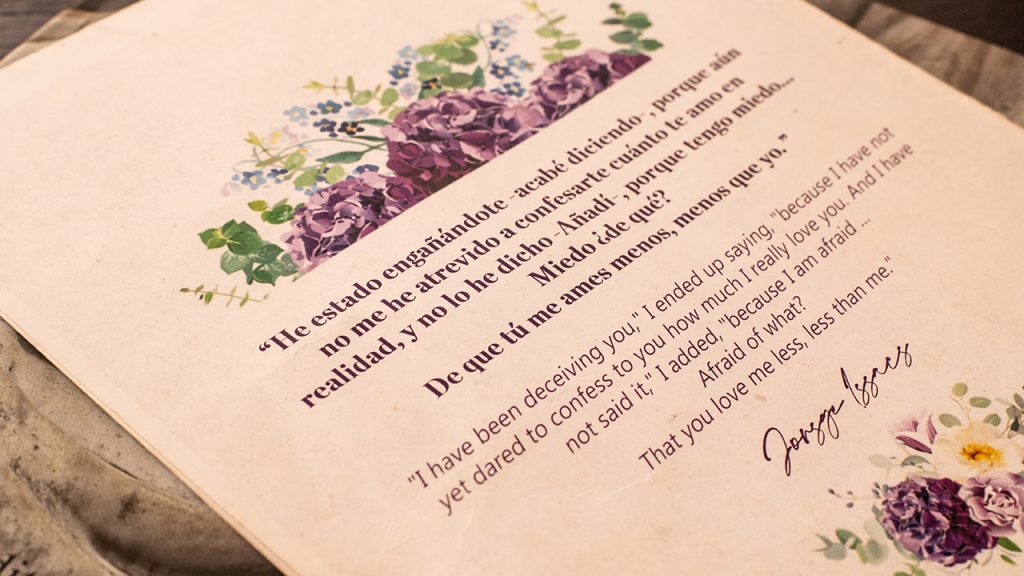 “He estado engañándote -acabé diciendo- , porque aún
no me he atrevido a confesarte cuánto te amo en
realidad, y no lo he dicho -Añadí- , porque tengo miedo...
Miedo ¿de qué?
De que tú me ames menos, menos que yo.”
"I have been deceiving you," I ended up saying, "because I have not
yet dared to confess to you how much I really love you. And I have
not said it," I added, "because I am afraid ...
Afraid of what?
That you love me less, less than me."
Jorge Issacs